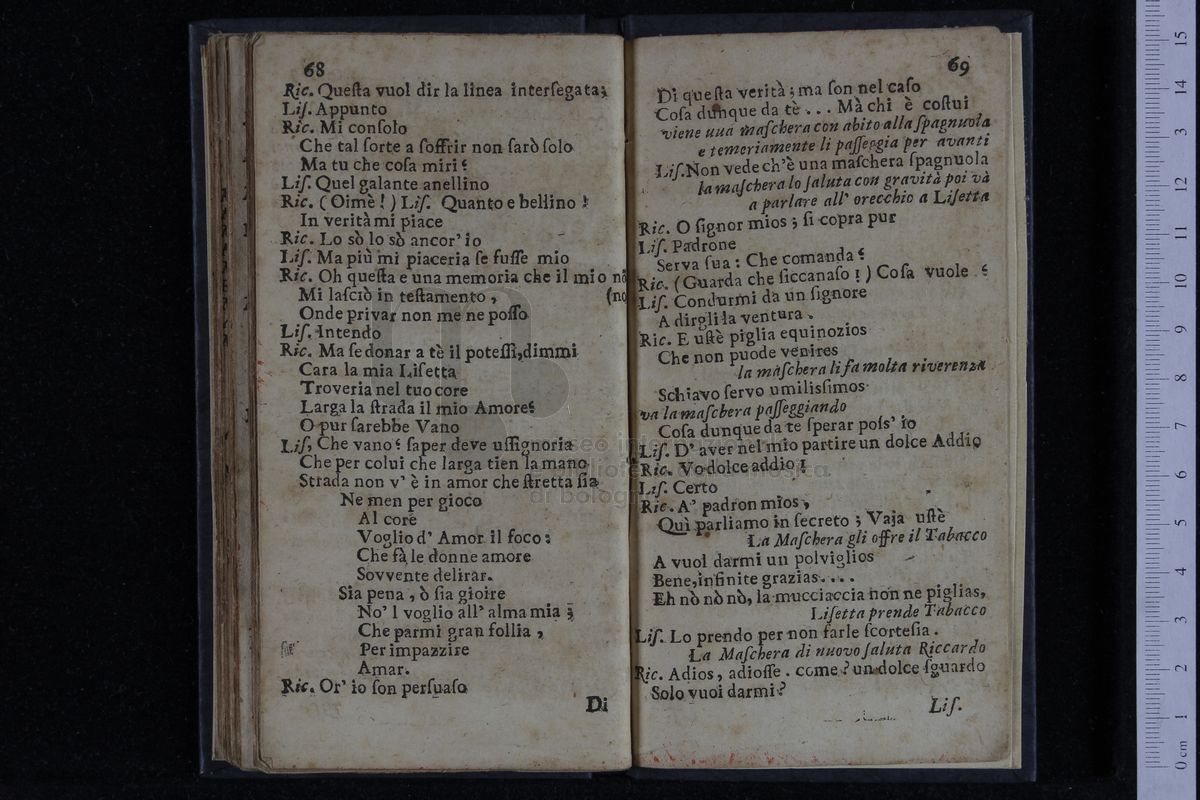 68
Ric. Queſta vuol dir la linea interſegata;
Liſ. Appunto
Ric. Mi conſolo
Che tal ſorte a ſoffrir non ſarò ſolo
Ma tu che coſa miri?
Liſ. Quel galante anellino
Ric. ( Oimè ! ) Liſ. Quanto e bellino !
In verità mi piace
Ric. Lo sò lo sò ancor' io
Liſ. Ma più mi piaceria ſe fuſſe mio
Ric. Oh queſta e una memoria che il mio nō
Mi laſciò in teſtamento , (no
Onde privar non me ne poſſo
Liſ. Intendo
Ric. Ma ſe donar a tè il poteſſi,dimmi
Cara la mia Liſetta
Troveria nel tuo core
Larga la ſtrada il mio Amore?
O pur ſarebbe Vano
Liſ, Che vano? ſaper deve uſſignoria
Che per colui che larga tien la mano
Strada non v' è in amor che ſtretta ſia
Ne men per gioco
Al core
Voglio d' Amor il foco:
Che fà le donne amore
Sovvente delirar.
Sia pena , ò ſia gioire
No' l voglio all' alma mia ;
Che parmi gran follia ,
Per impazzire
Amar.
Ric. Or' io ſon perſuaſo
Di
69
Di queſta verità ; ma ſon nel caſo
Coſa dunque da tè . . . Mà chi è coſtui
viene uua maſchera con abito alla ſpagnuola
e temeriamente li paſſeggia per avanti
Liſ.Non vede ch'è una maſchera ſpagnuola
la maſchera lo ſaluta con gravità poi và
a parlare all' orecchio a Liſetta
Ric. O ſignor mios ; ſi copra pur
Liſ. Padrone
Serva ſua : Che comanda?
Ric. (Guarda che ſiccanaſo ! ) Coſa vuole ?
Liſ. Condurmi da un ſignore
A dirgli la ventura .
Ric. E uſtè piglia equinozios
Che non puode venires
la maſchera li fa molta riverenza
Schiavo ſervo umiliſsimos
va la maſchera paſſeggiando
Coſa dunque da te ſperar poſs' io
Liſ. D' aver nel mio partire un dolce Addio
Ric. Vo dolce addio !
Liſ. Certo
Ric. A' padron mios ,
Quì parliamo in ſecreto ; Vaja uſtè
La Maſchera gli offre il Tabacco
A vuol darmi un polviglios
Bene,infinite grazias. . . .
Eh nò nò nò, la mucciaccia non ne piglias,
Liſetta prende Tabacco
Liſ. Lo prendo per non farle ſcorteſia .
La Maſchera di nuovo ſaluta Riccardo
Ric. Adios, adioſſe . come ? un dolce ſguardo
Solo vuoi darmi?
Liſ.